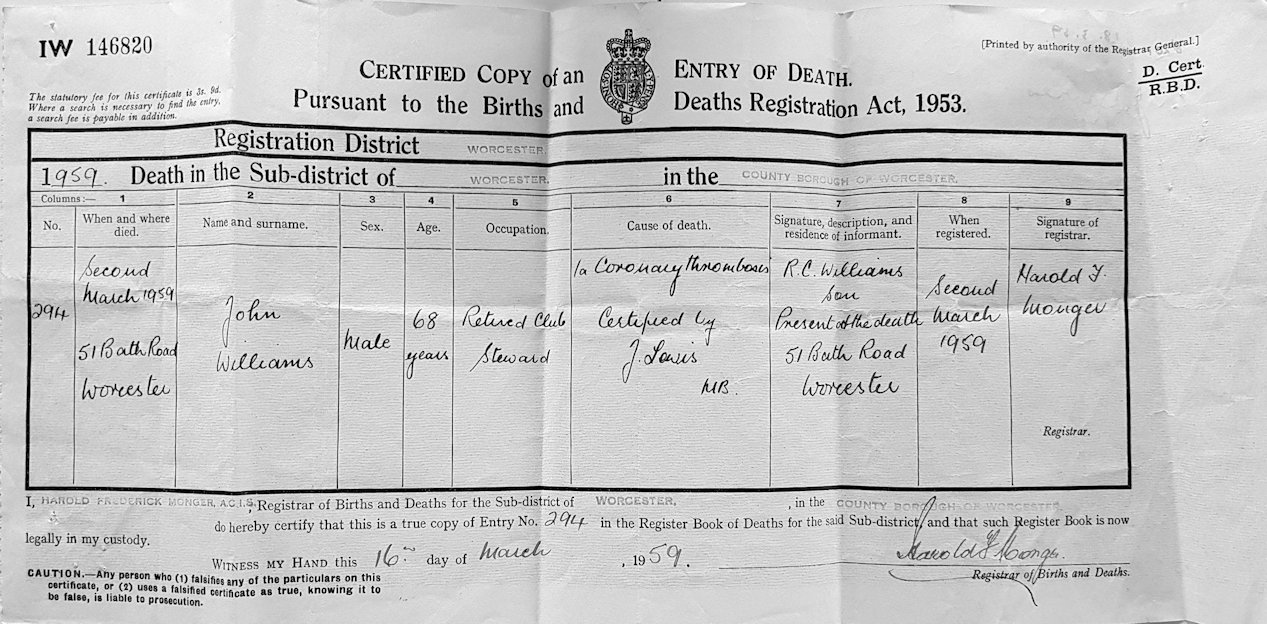 IW 146820
[Printed by authority of the Registrar General.]
D. Cert.
R.B.D.
The statutory fee for this certificate is 3s. 9d.
Where a search is necessary to find the entry,
a search fee is payable in addition.
CERTIFIED COPY of an ENTRY OF DEATH.
Pursuant to the Births and Deaths Registration Act, 1953.
Registration District WORCESTER.
1959. Death in the Sub-district of WORCESTER. in the COUNTY BOROUGH OF WORCESTER.
Columns:— 1 2 3 4 5 6 7 8 9
No.
When and where
died.
Name and surname.
Sex.
Age.
Occupation.
Cause of death.
Signature, description, and
residence of informant.
When
registered.
Signature of
registrar.
294
Second
March 1959
51 Bath Road
Worcester
John
Williams
Male
68
years
Retired Club
Steward
1a Coronary thrombosis
Certified by
J. Lewis
MB.
R.C. Williams
Son
Present at the death
51 Bath Road
Worcester
Second
March
1959
Harold F.
Monger
Registrar.
I, HAROLD FREDERICK MONGER, A.C.I.S., Registrar of Births and Deaths for the Sub-district of WORCESTER. , in the COUNTY BOROUGH OF WORCESTER.
do hereby certify that this is a true copy of Entry No. 294 in the Register Book of Deaths for the said Sub-district, and that such Register Book is now
legally in my custody.
WITNESS MY HAND this 16th day of March , 1959.
Harold F Monger.
Registrar of Births and Deaths.
CAUTION.—Any person who (1) falsifies any of the particulars on this
certificate, or (2) uses a falsified certificate as true, knowing it to
be false, is liable to prosecution.